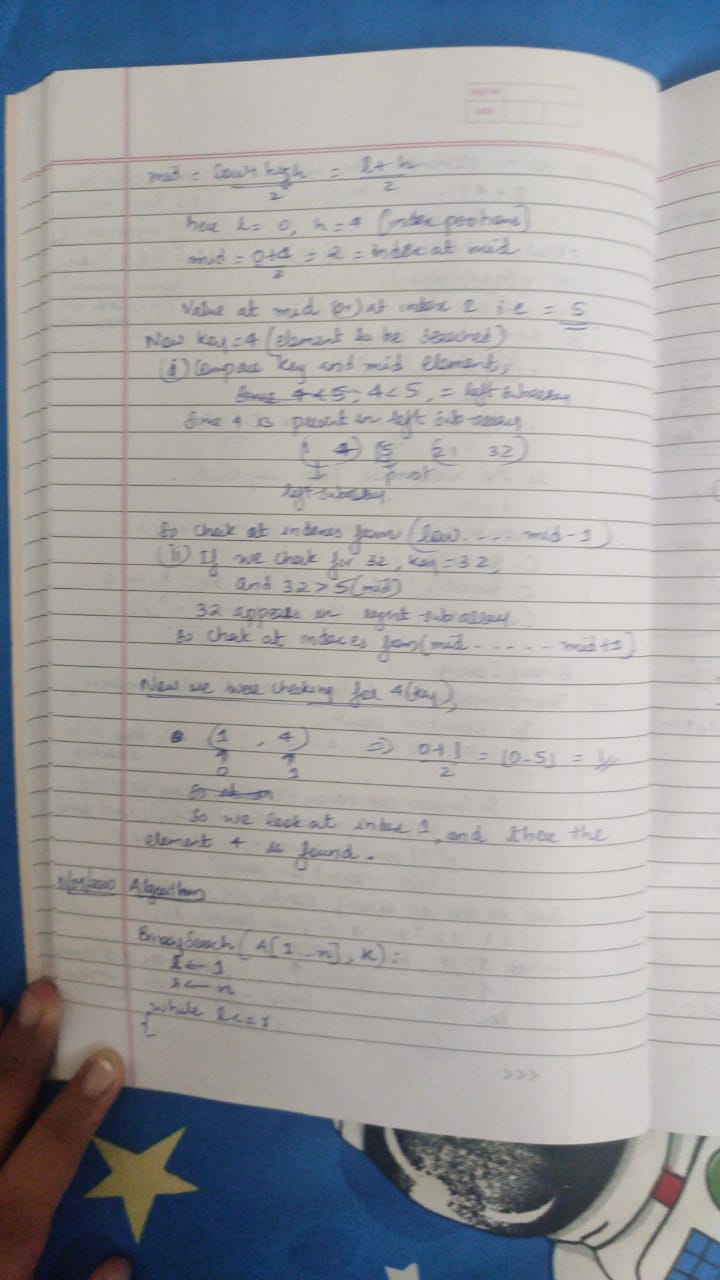 mid = low + high / 2 = l + h / 2
here l = 0, h = 4 (index positions)
mid = 0+4 / 2 = 2 = index at mid
Value at mid (or) at index 2 i.e = 5
Now key = 4 (element to be searched)
(i) Compare key and mid element,
Since 4 < 5; 4 < 5, = left subarray
Since 4 is present in left sub array
(1 4) 5 (21 32)
pivot
left subarray
So check at indexes from (low .... mid-1)
(ii) If we check for 32, key = 32,
and 32 > 5 (mid)
32 appears in right sub array
So check at indexes from (mid ..... mid+1)
Now we were checking for 4 (key),
(1, 4) => 0+1 / 2 = [0.5] = 1
0 1
So
So we look at index 1, and there the
element 4 is found.
Algorithm
Binary Search (A[1...n], K):
l ← 1
r ← n
while l <= r
{
>>>